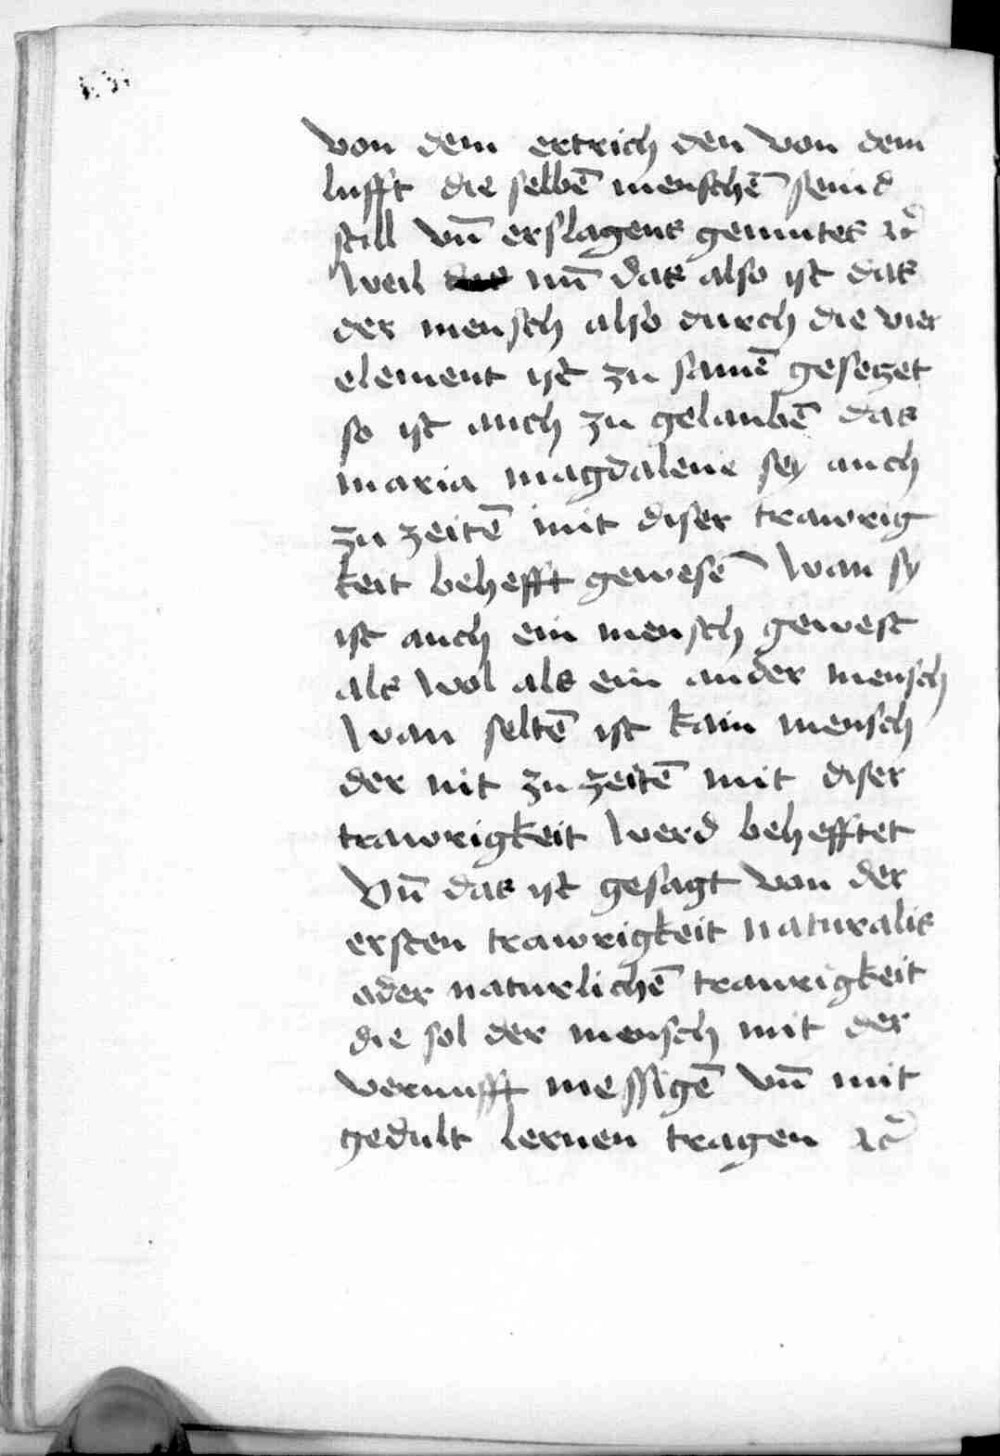 von dem ertrich den von dem
lufft die selbē menschē seind
still vn̄ erslagens gemutes ⁊c̄
Weil nun̄ das also ist das
der mensch also durch die vier
element ist zu samē gesetzet
so ist auch zu gelaubē das
maria magdalene sey auch
zu zeitē mit diser trawrig
keit behefft gewesē wan sy
ist auch ein mensch gewest
als wol als ein ander mensch
Wan seltē ist kain mensch
der nit zu zeitē mit diser
trawrigkeit werd behefftet
Vn̄ das ist gesagt von der
ersten trawrigkeit naturalis
oder naturlichē trawrigkeit
die sol der mensch mit der
vernufft messigē vn̄ mit
gedult lernen tragen ⁊c̄